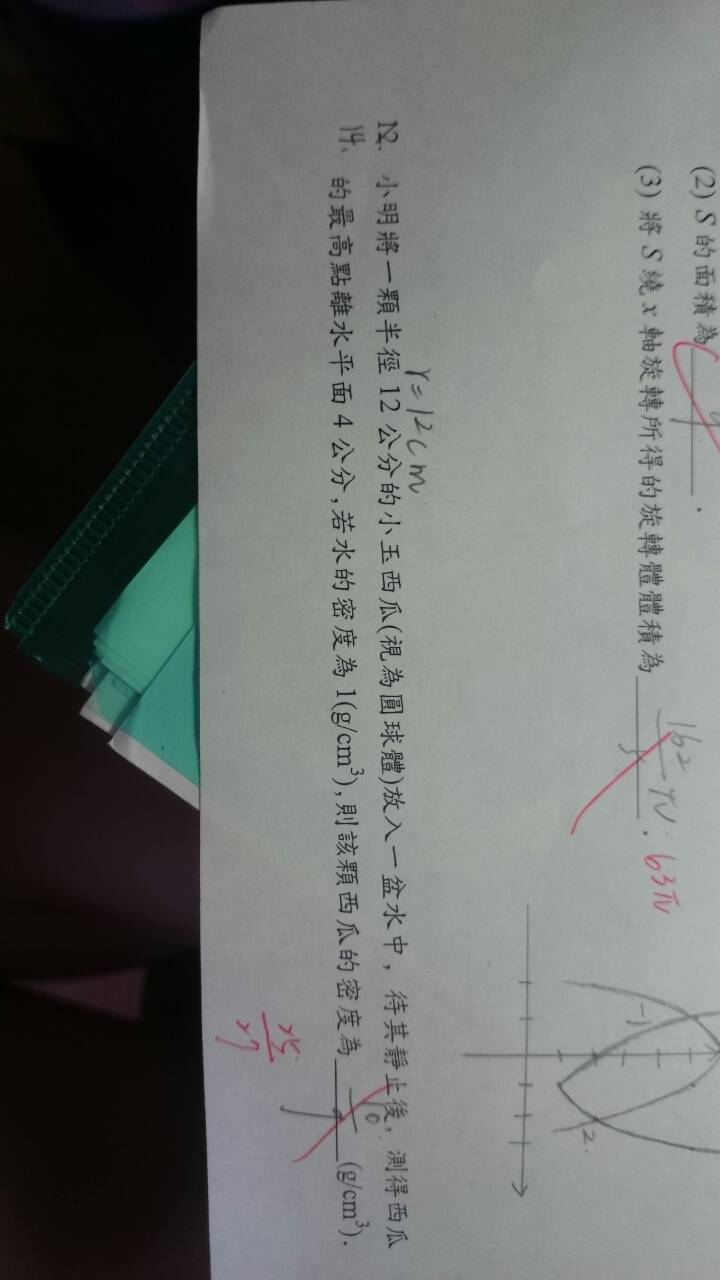 (2) S 的面積為
(3) 將 S 繞 x 軸旋轉所得的旋轉體體積為 162 π . 63π
r=12cm
12. 小明將一顆半徑 12 公分的小玉西瓜(視為圓球體)放入一盆水中，待其靜止後，測得西瓜
14. 的最高點離水平面 4 公分，若水的密度為 1(g/cm³)，則該顆西瓜的密度為 (g/cm³).
-1
2